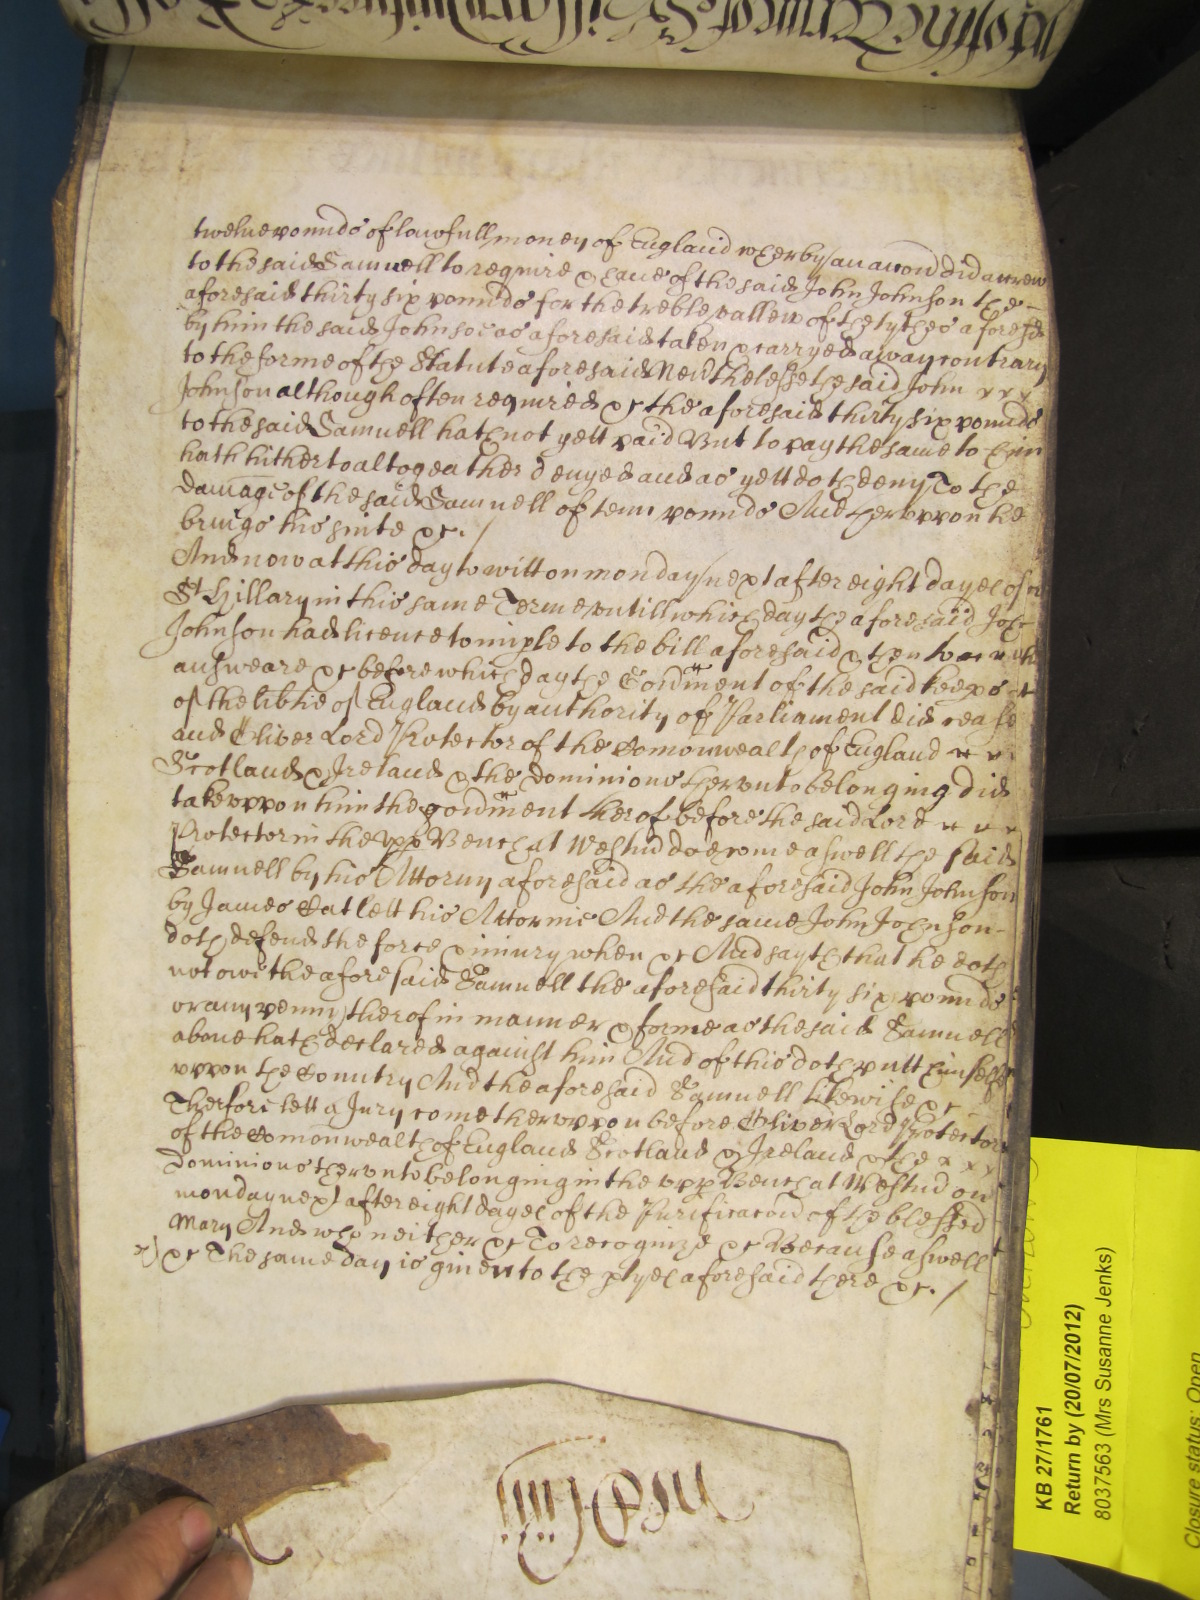 twelue pounds of lawfull money of England wherby an accon did accrew
to the said Samuell to require & haue of the said John Johnson the
aforesaid thirty six pounds for the treble vallew of the tythes aforesd
by him the said John soe as aforesaid taken & carryed away contrary
to the forme of the Statute aforesaid Nevthelesse the said John
Johnson although often required &c the aforesaid thirty six pounds
to the said Samuell hath not yett paid But to pay the same to him
hath hitherto altogeather denyed and as yett doth deny To the
damage of the said Samuell of tenn pounds And thervppon he
brings his suite &c. /
And now at this day to witt on monday next after eight dayes of
St Hillary in this same Terme vntill which day the aforesaid John
Johnson had licence to imple to the bill aforesaid & then to
answeare &c before which day the Govment of the said keepers
of the libtie of England by authority of Parliament did cease
and Oliver Lord Protector of the Comonwealth of England
Scotland & Ireland & the Dominions thervnto belonging did
take vppon him the govment therof before the said Lord
Protector in the vpp Bench at Westmd doe come aswell the said
Samuell by his Attorny aforesaid as the aforesaid John Johnson
by James Catlett his Attornie And the same John Johnson
doth defend the force & iniury when &c And sayth that he doth
not owe the aforesaid Samuell the aforesaid thirty six pounds
or any penny therof in manner & forme as the said Samuell
aboue hath declared against him And of this doth putt himselfe
vppon the Country And the aforesaid Samuell likewise &c
Therfore lett a Jury come thervppon before Oliver Lord Protector
of the Comonwealth of England Scotland & Ireland & the
Dominions thervnto belonging in the vpp Bench at Westmd on
monday next after eight dayes of the Purificacon of the blessed
Mary And who neither &c To recognize &c Because aswell
&c The same day is giuen to the ptyes aforesaid there &c. /
KB 27/1761
Return by (20/07/2012)
8037563 (Mrs Susanne Jenks)
Closure status: Open